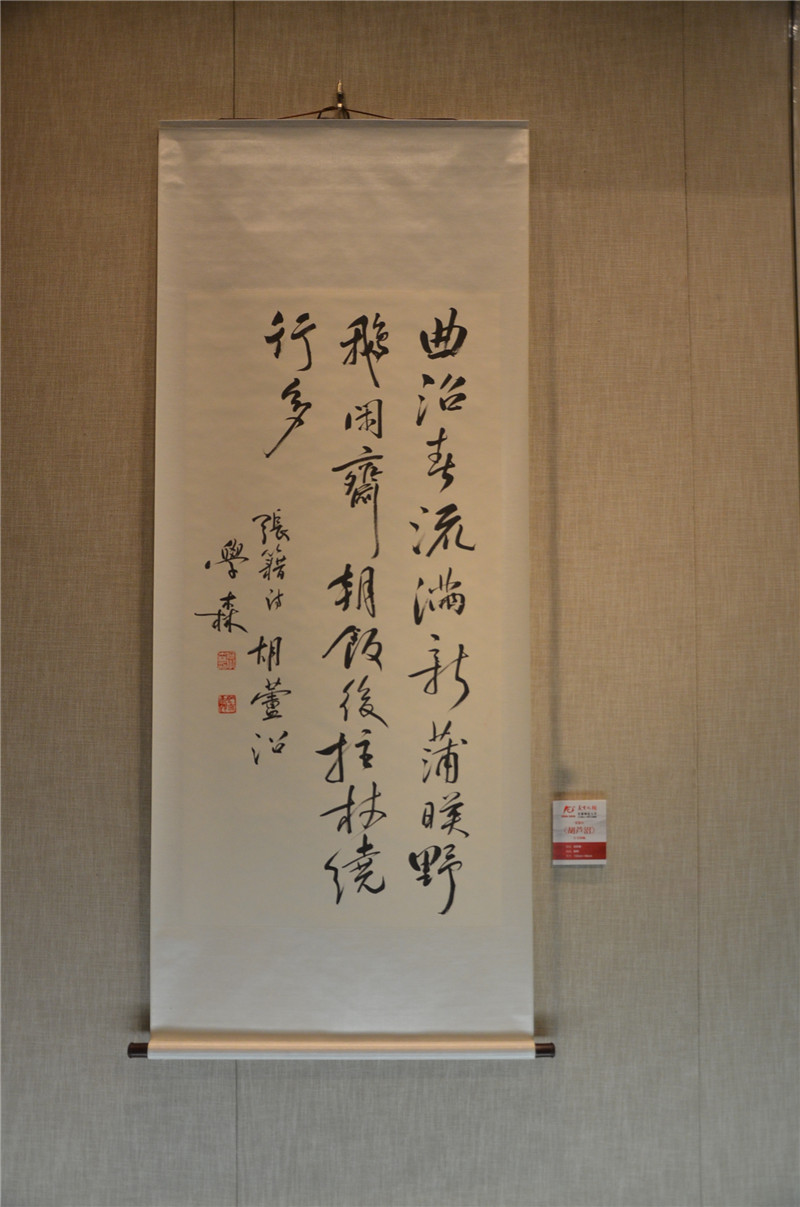 曲沼春流滿新蒲暎野
鵝閑齋朝飯後拄杖繞
行多
張籍詩胡蘆沼
學森
《葫芦沼》